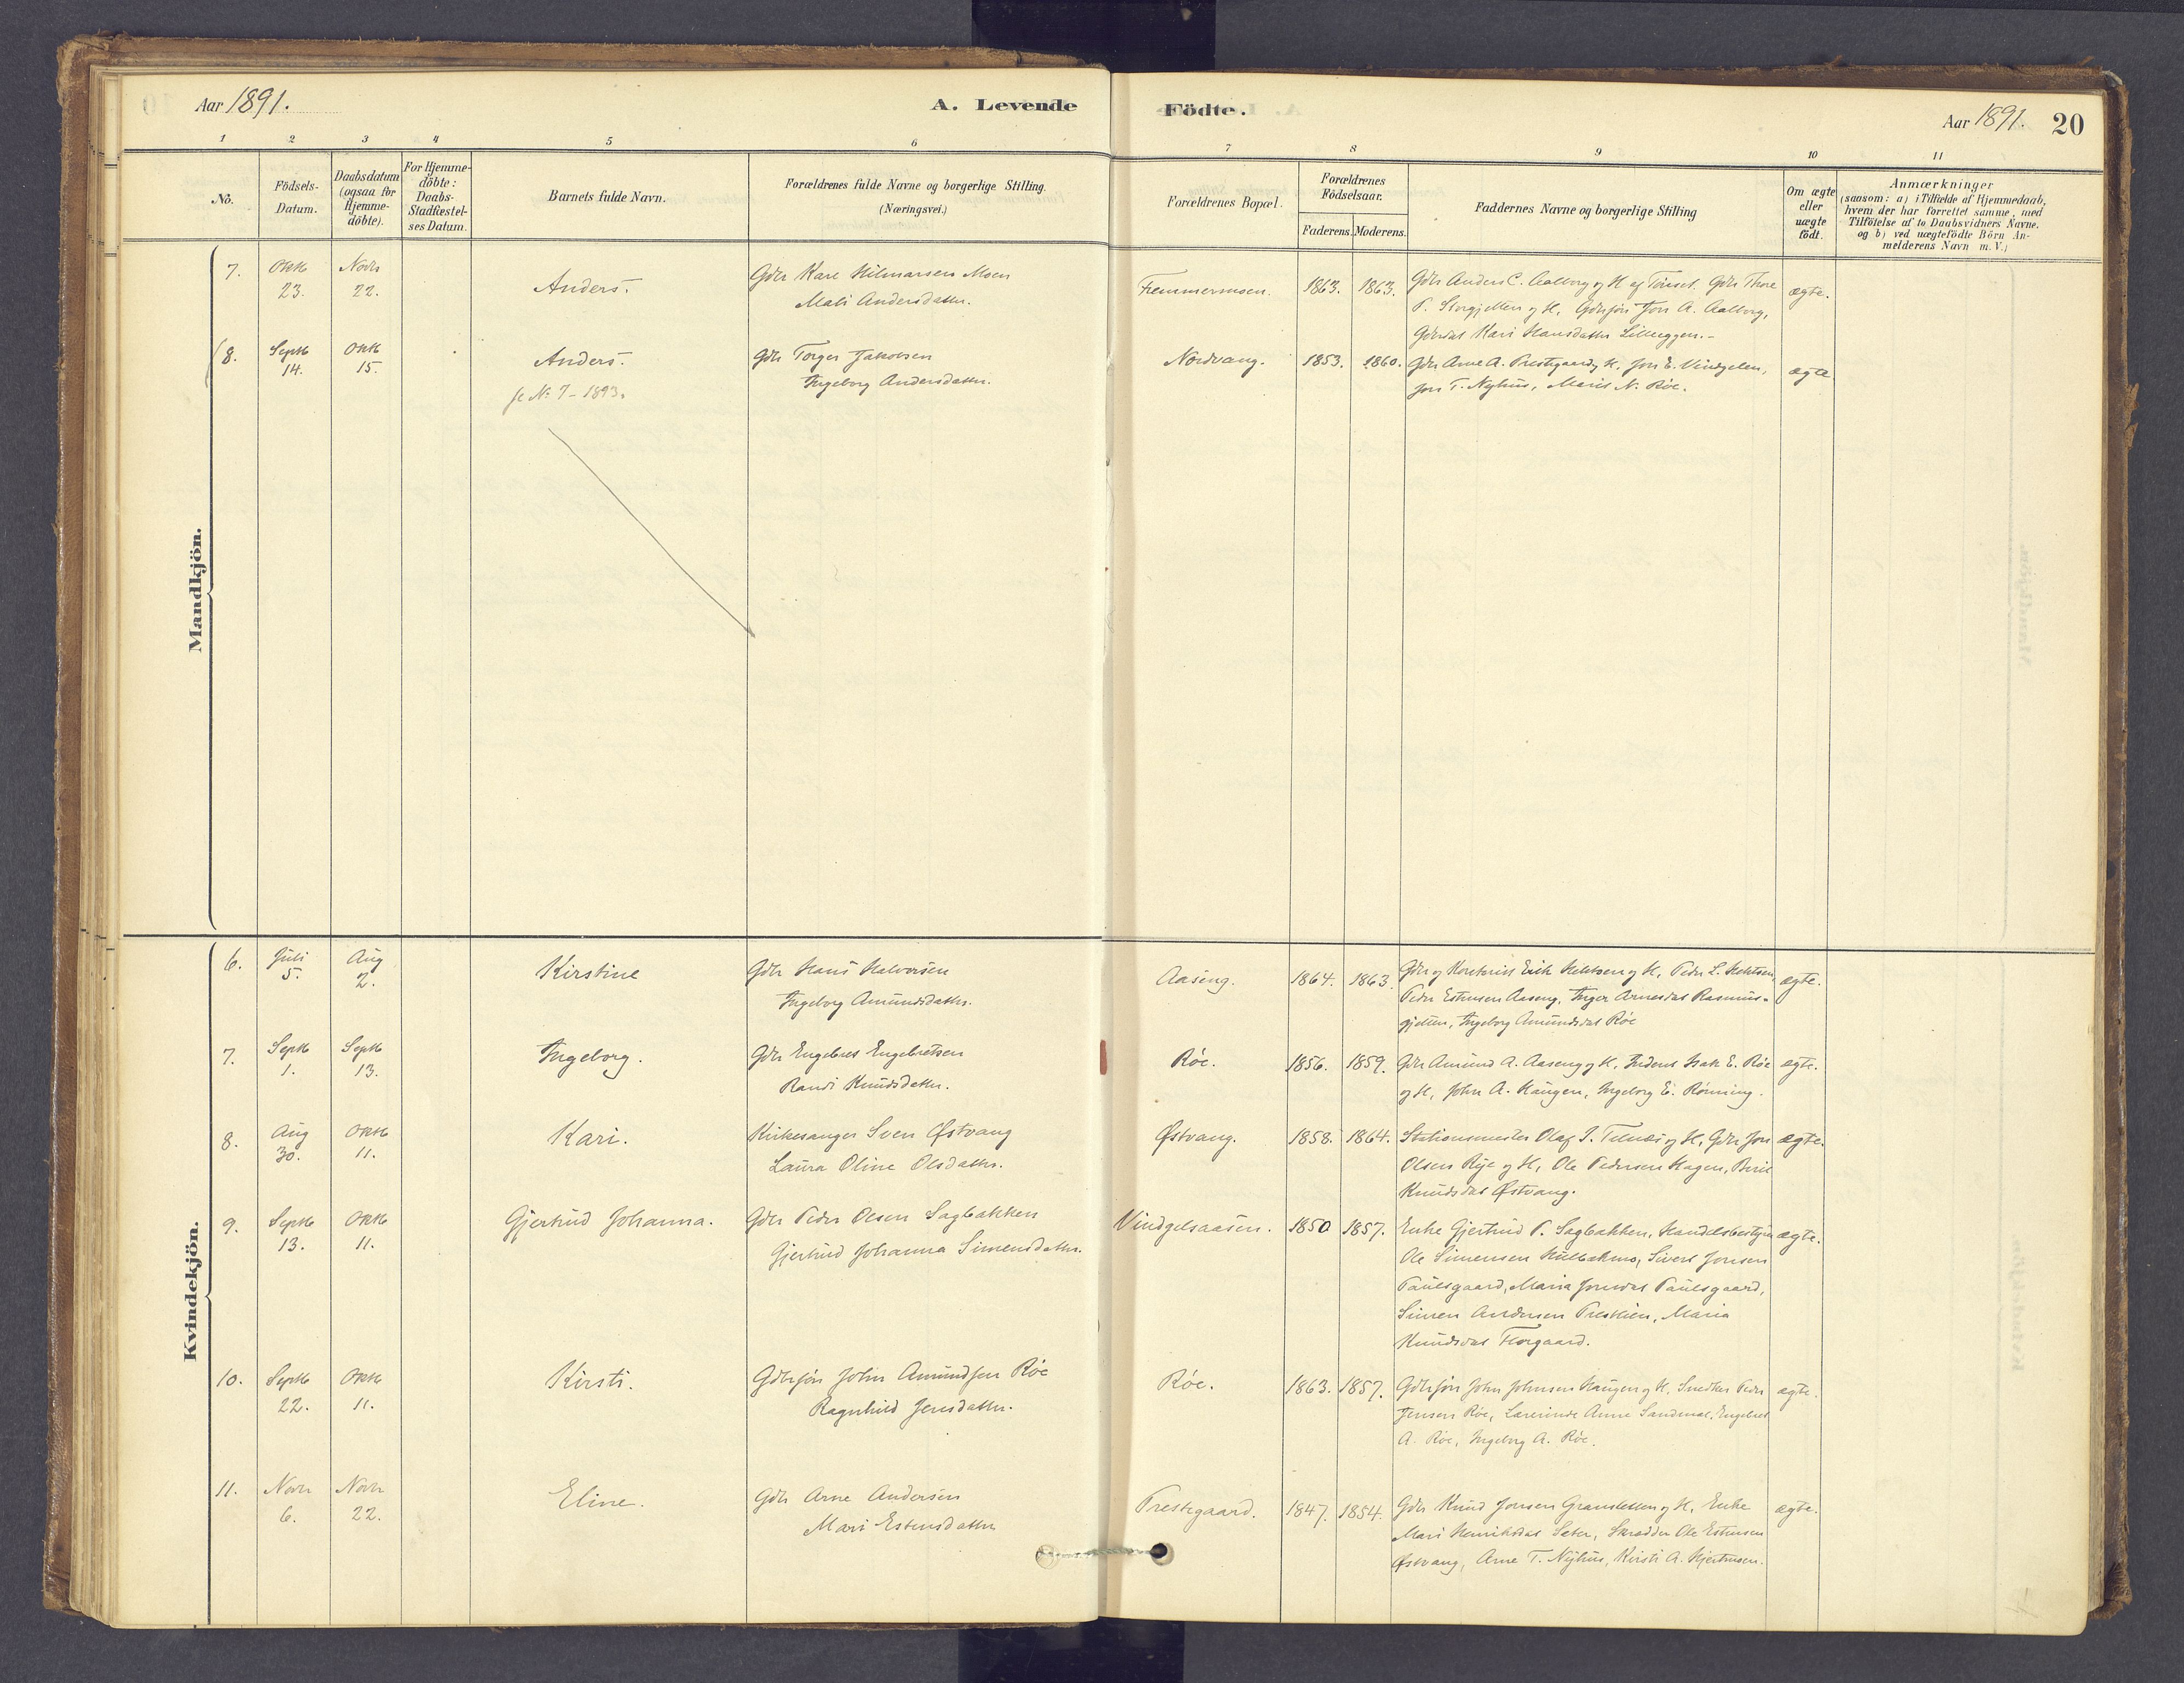 Aar 1891.
A. Levende
Födte.
Aar 1891. 20
1 2 3 4 5 6 7 8 9 10 11
No.
Födsels-
Datum.
Daabsdatum
(ogsaa for
Hjemme-
döbte).
For Hjemme-
döbte:
Daabs-
Stadfæstel-
ses Datum.
Barnets fulde Navn.
Forældrenes fulde Navne og borgerlige Stilling.
(Næringsvei.)
Forældrenes Bopæl.
Forældrenes
Födselsaar.
Faderens. Moderens.
Faddernes Navne og borgerlige Stilling
Om ægte
eller
uægte
födt.
Anmærkninger
(saasom: a) i Tilfælde af Hjemmedaab,
hvem der har forrettet samme, med
Tilföielse af to Daabsvidners Navne.
og b) ved uægtefödte Börn An-
melderens Navn m. V.)
Mandkjön.
7. Oktb 23. Novbr 22. Anders. Gdbr Kare Hilmarsen Moen
Mali Andersdatter.
1863. 1863.
Gdbr Anders C. Aalborg og H. af Tönset. Gdbr Thore
P. Storgjelten og H., Gdbrsön Jon A. Aalborg,
Gdbrdat Kari Hansdatter Lilleeggen.
ægte.
8. Septb 14. Oktb 15. Anders. Gdbr Torger Jakobsen
Ingeborg Andersdatter.
se No 7 - 1893.
Nordvang. 1853. 1860.
Gdbr Arne A. Prestgaard og H. Jon E. Vingelen,
Jon T. Nyhus, Marit N. Röe.
ægte
Kvindekjön.
6. Juli 5. Aug 2. Kirstine Gdbr Hans Halvorsen
Ingeborg Amundsdatter.
Aaseng. 1864. 1863.
Peder Estensen Aaseng, Inger Arnesdat Rasmus-
gjelten, Ingeborg Amundsdat Röe
ægte.
7. Septb 1. Septb 13. Ingeborg. Gdbr Engebret Engebretsen
Randi Knudsdatter.
Röe. 1856. 1859.
Gdbr Amund A. Aaseng og H. Inderst Isak E. Röe
og H, John A. Haugen, Ingeborg E. Rönning.
ægte.
8. Aug 30. Oktb 11. Kari. Kirkesanger Sven Østvang
Laura Oline Olsdatter.
Østvang. 1858. 1864.
Stationsmester Olaf J. Telnæs og H, Gdbr Jon
Olsen Rye og H, Ole Pedersen Hagen, Beril
Knudsdat Østvang.
ægte.
9. Septb 13. Oktb 11. Gjertrud Johanna. Gdbr Peder Olsen Sagbakken
Gjertrud Johanna Simensdatter.
Vindgelsaasen. 1850 1857.
Enke Gjertrud P. Sagbakken, Handelsbestyrer
Ole Simensen Kulbakmo, Sivert Jonsen
Paulsgaard, Maria Jonsdat Paulsgaard,
Simen Andersen Prestlien, Maria
Knudsdat Horgaard.
ægte.
10. Septb 22. Oktb 11. Kirsti. Gdbrsön John Amundsen Röe
Ragnhild Jensdatter.
Röe. 1863. 1857.
Gdbrsön John Johnsen Haugen og H, Snedker Peder
Jensen Röe, Lærerinde Anne Sandmæl, Engebret
A. Röe, Ingeborg A. Röe.
ægte.
11. Novbr 6. Novbr 22. Eline. Gdbr Arne Andersen
Mari Estensdatter
Prestgaard. 1847. 1854.
Gdbr Knud Jonsen Gransletten og H, Enke
Mari Henriksdat Seter, Skrædder Ole Estensen
Østvang, Arne T. Nyhus, Kirsti A. Hjertmoen.
ægte.